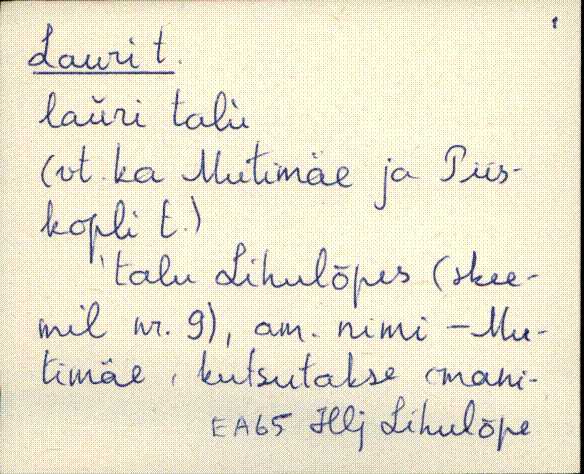 Lauri t.
laŭri talu
(vt. ka Mutimäe ja Piis-
kopli t.)
'talu Lihulõpes (skee-
mil nr. 9), am. nimi - Mu-
timäe, kutsutakse mani-
EA65 Hlj Lihulõpe